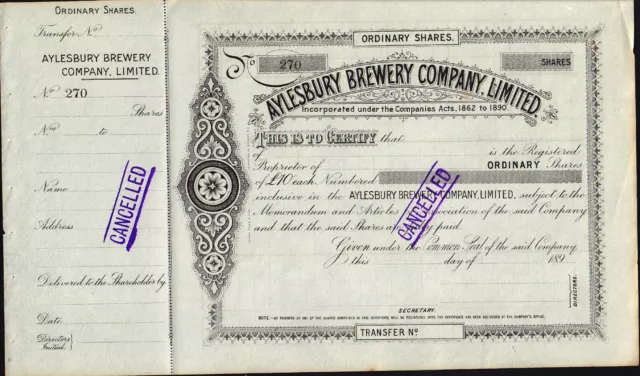 ORDINARY SHARES.
Transfer No
AYLESBURY BREWERY
COMPANY, LIMITED.
No 270
Shares
Nos to
Name
Address
Delivered to the Shareholder by
Date
Directors
Initial
CANCELLED
ORDINARY SHARES.
No 270 SHARES
AYLESBURY BREWERY COMPANY, LIMITED.
Incorporated under the Companies Acts, 1862 to 1890.
THIS IS TO CERTIFY that
of is the Registered
Proprietor of ORDINARY Shares
of £10 each Numbered
inclusive in the AYLESBURY BREWERY COMPANY, LIMITED, subject to the
Memorandum and Articles of Association of the said Company
and that the said Shares are fully paid.
Given under the Common Seal of the said Company
this day of 189
CANCELLED
DIRECTORS.
SECRETARY.
NOTE.—NO TRANSFER OF ANY OF THE SHARES COMPRISED IN THIS CERTIFICATE WILL BE REGISTERED UNTIL THE CERTIFICATE HAS BEEN DELIVERED AT THE COMPANY'S OFFICE.
TRANSFER No